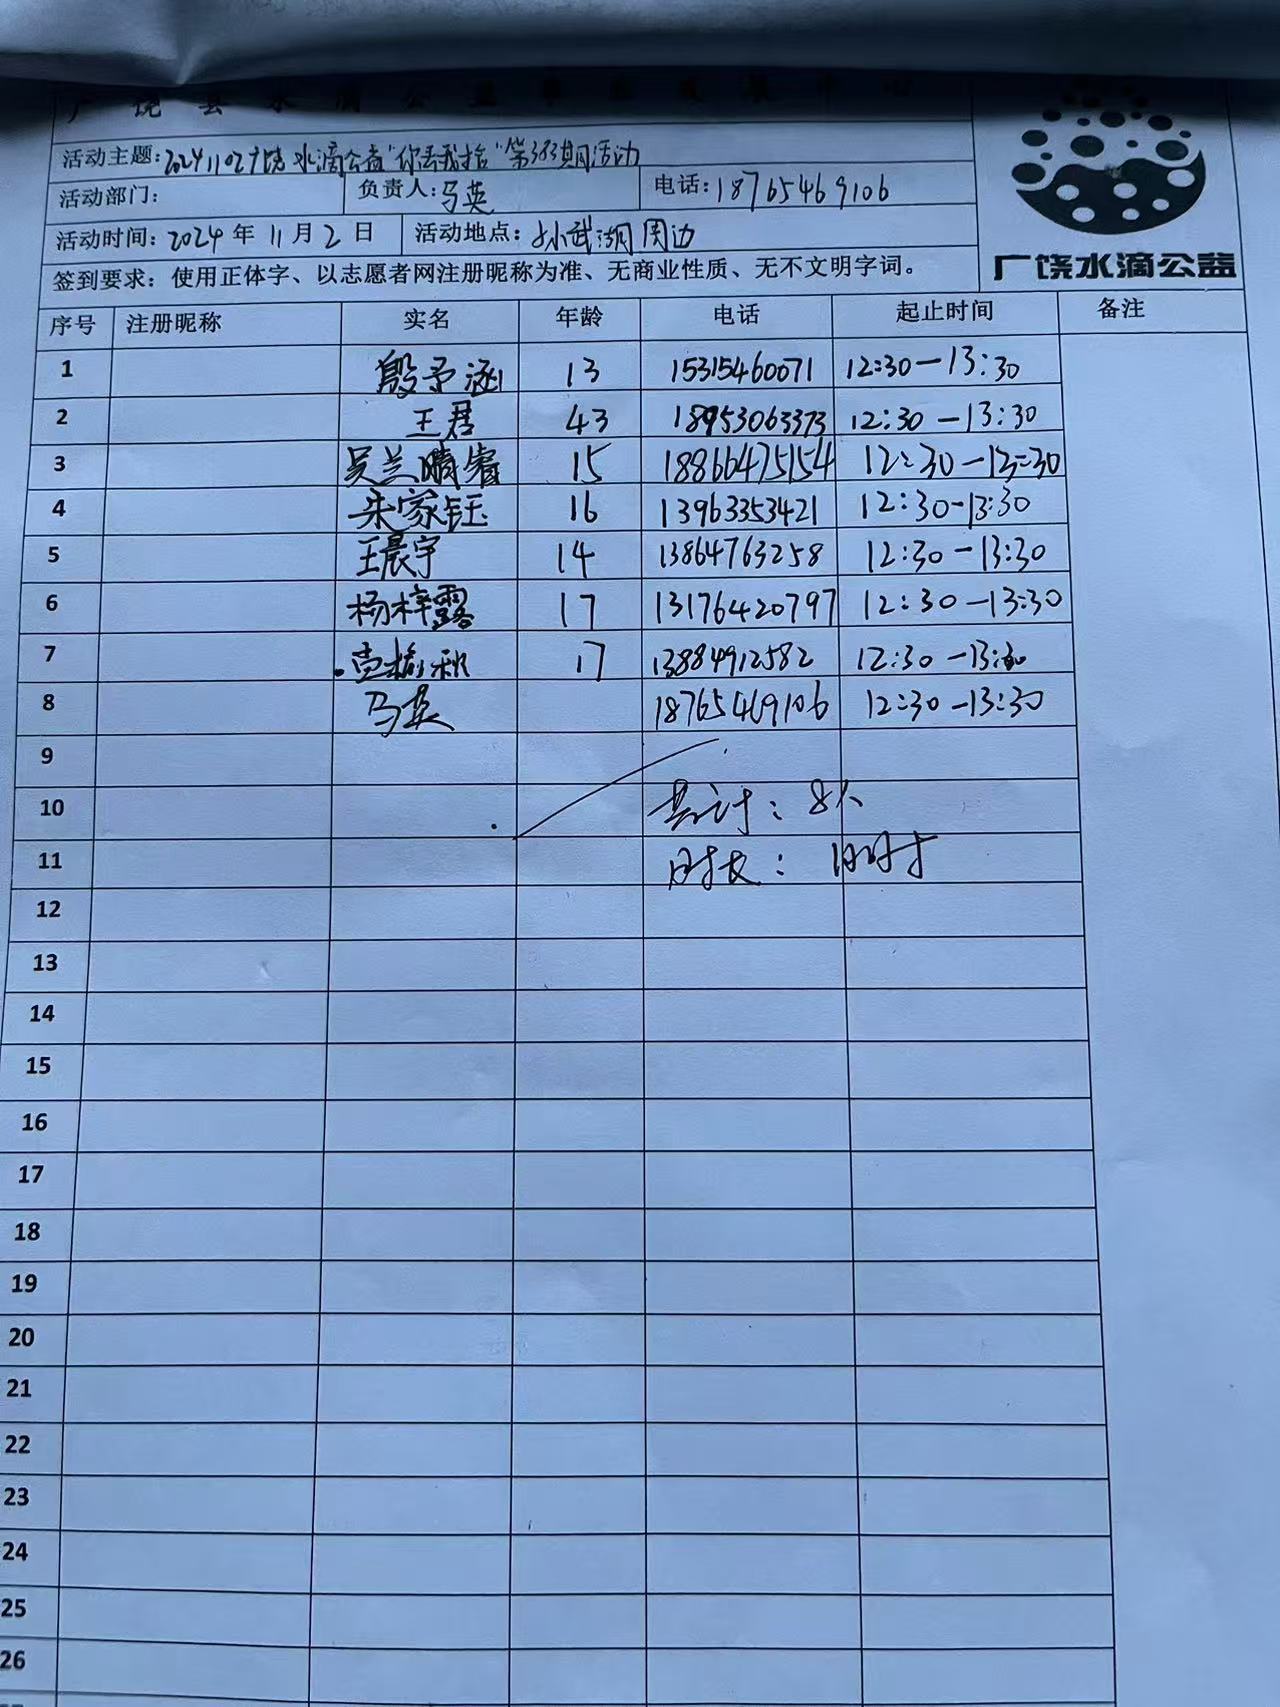 广饶县水滴公益事业发展中心
活动主题:20241102广饶水滴公益"你丢我拾"第383期活动
活动部门: 负责人:马英 电话:18765469106
活动时间:2024年11月2日 活动地点:孙武湖周边
签到要求:使用正体字、以志愿者网注册昵称为准、无商业性质、无不文明字词。
广饶水滴公益
序号 注册昵称 实名 年龄 电话 起止时间 备注
1 殷予涵 13 15315460071 12:30-13:30
2 王君 43 18953063373 12:30-13:30
3 吴兰晴睿 15 18866475154 12:30-13:30
4 朱家钰 16 13963353421 12:30-13:30
5 王晨宇 14 13864763258 12:30-13:30
6 杨梓露 17 13176420797 12:30-13:30
7 17 13884912582 12:30-13:30
8 马英 18765469106 12:30-13:30
9
10 共计:8人
11 时长:1小时
12
13
14
15
16
17
18
19
20
21
22
23
24
25
26